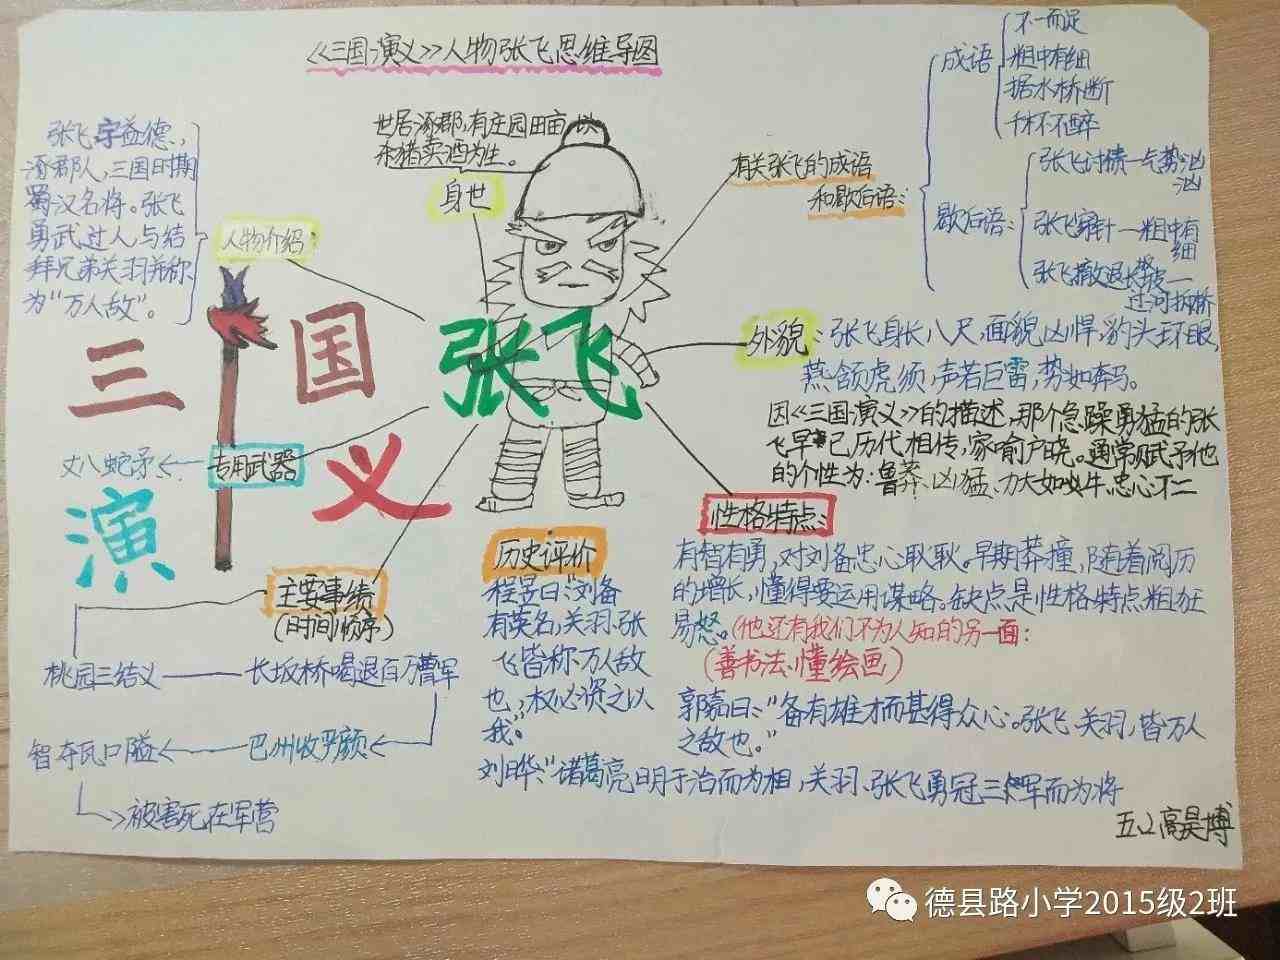 《三国演义》人物张飞思维导图
张飞,字益德,
涿郡人,三国时期
蜀汉名将。张飞
勇武过人,与结
拜兄弟关羽并称
为“万人敌”。
人物介绍:
世居涿郡,有庄园田亩,以
杀猪卖酒为生。
身世
有关张飞的成语
和歇后语:
成语
不一而足
粗中有细
据水桥断
歇后语:
张飞讨债—气势汹
汹
张飞穿针—粗中有
细
张飞撤退长坂坡—
过河拆桥
三
国
演
义
张飞
外貌:张飞身长八尺,面貌凶悍,豹头环眼,
燕颔虎须,声若巨雷,势如奔马。
因《三国演义》的描述,那个急躁勇猛的张
飞早已历代相传,家喻户晓。通常赋予他
的个性为:鲁莽、凶猛、力大如牛、忠心不二
丈八蛇矛
专用武器
性格特点:
有智有勇,对刘备忠心耿耿。早期莽撞,随着阅历
的增长,懂得要运用谋略。缺点是性格特点粗狂
易怒。(他还有我们不为人知的另一面:
(善书法、懂绘画)
主要事绩
(时间顺序)
桃园三结义
长坂桥喝退百万曹军
巴州收严颜
智夺瓦口隘
被害死在军营
历史评价
程昱曰:“刘备
有英名,关羽、张
飞皆称万人敌
也,权必资之以
我。”
郭嘉曰:“备有雄才而甚得众心。张飞、关羽,皆万人
之敌也。”
刘晔:“诸葛亮明于治而为相,关羽、张飞勇冠三军而为将
五.2高昊博
德县路小学2015级2班